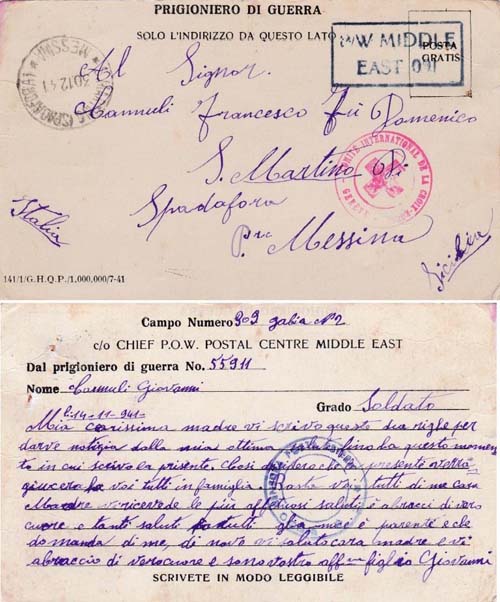 PRIGIONIERO DI GUERRA
SOLO L'INDIRIZZO DA QUESTO LATO
P/W MIDDLE
EAST 091
POSTA
GRATIS
MESSINA
30.12.41
Al Signor.
Cannuli Francesco fù Domenico
S. Martino Di
Spadafora
Pre Messina
Italia
Sicilia
COMITÉ INTERNATIONAL DE LA CROIX-ROUGE
GENÈVE
141/1/G.H.Q.P./1.000.000/7-41
Campo Numero 309 gabia N° 2
c/o CHIEF P.O.W. POSTAL CENTRE MIDDLE EAST
Dal prigioniero di guerra No. 55911
Nome Cannuli Giovanni
Grado Soldato
li 14-11-941-
Mia carissima madre vi scrivo queste due righe per
darve notizia dalla mia ottima fino ha questo momen
to in cui scrivo la prisente, Chosi desidero che presente
giucera ha voi tutti in famiglia Basta voi tutti di me cara
Madre vi ricevede le più affettuosi saluti e abracci di vero
cuore e tanti saluti ha tutti gli amici è parente e che
domanda di me, di novo vi saluto cara madre e vi
abraccio di vero cuore e sono vostro aff figlio Giovanni
SCRIVETE IN MODO LEGGIBILE